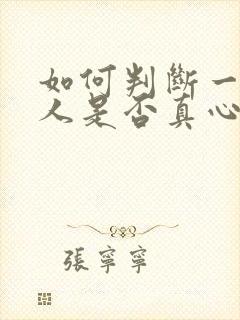 如何判斷一
人是否真心
張寧寧